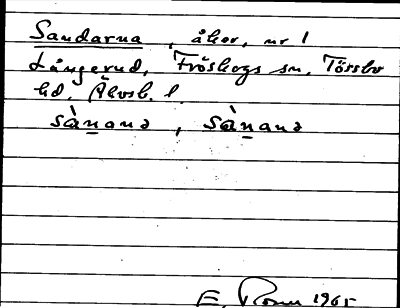 Sandarna, åker, nr 1
Långerud, Fröskogs sn, Tössbo
hd, Älvsb. l.
sànanə, sànanə
E. Rosen 1965